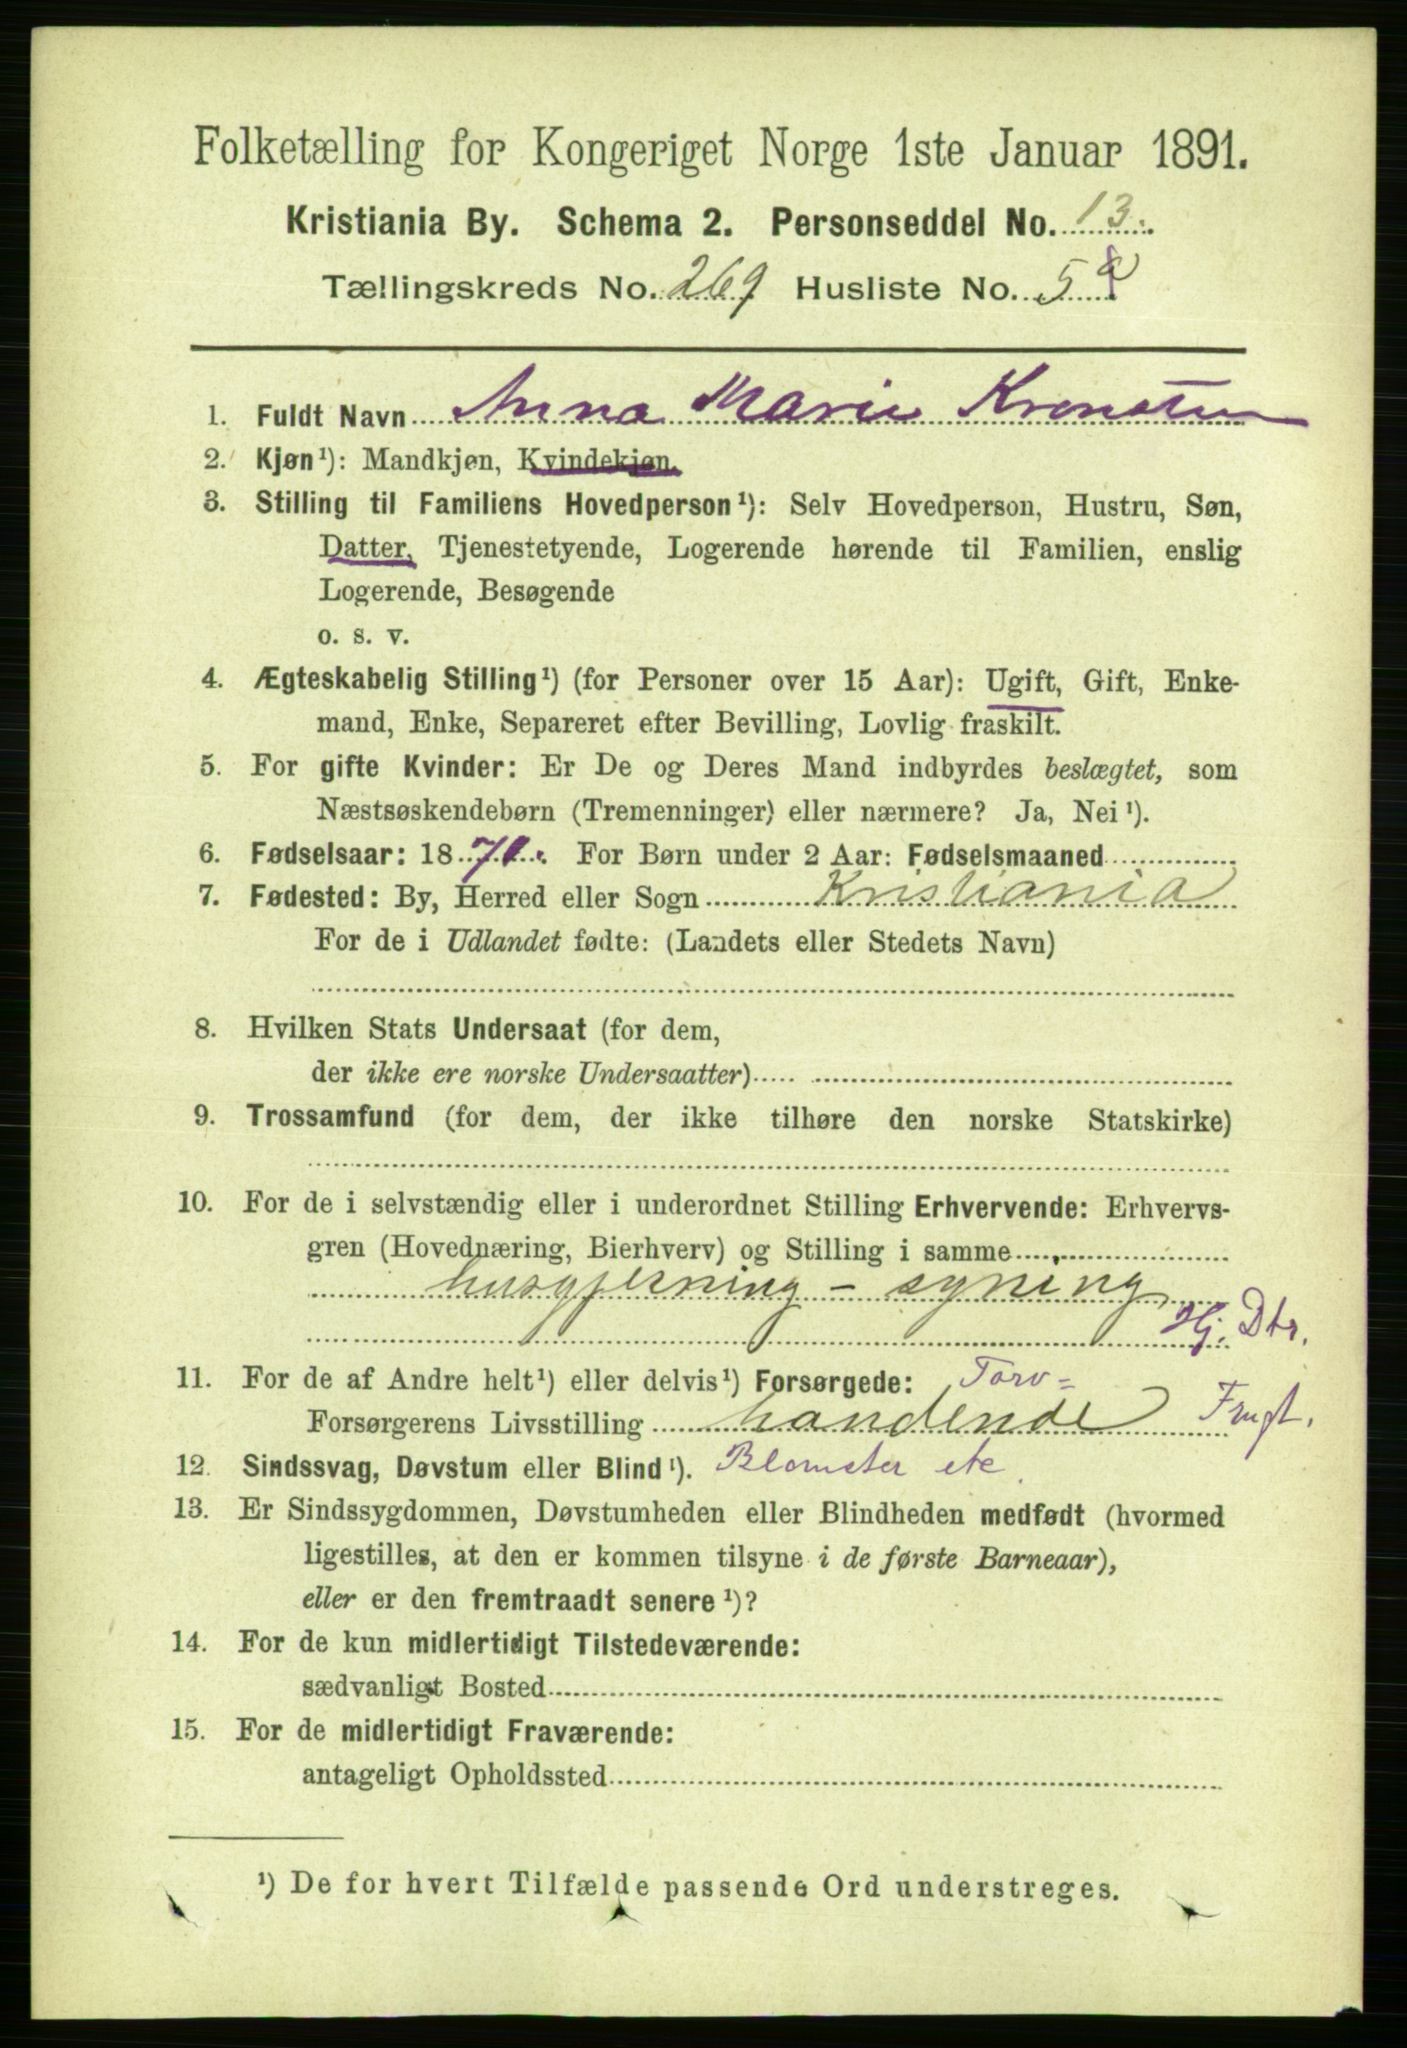 Folketælling for Kongeriget Norge 1ste Januar 1891.
Kristiania By. Schema 2. Personseddel No. 13.
Tællingskreds No. 269 Husliste No. 5 a
1. Fuldt Navn Anna Marie
2. Kjøn¹): Mandkjøn, Kvindekjøn.
3. Stilling til Familiens Hovedperson¹): Selv Hovedperson, Hustru, Søn,
Datter, Tjenestetyende, Logerende hørende til Familien, enslig
Logerende, Besøgende
o. s. v.
4. Ægteskabelig Stilling¹) (for Personer over 15 Aar): Ugift, Gift, Enke-
mand, Enke, Separeret efter Bevilling, Lovlig fraskilt.
5. For gifte Kvinder: Er De og Deres Mand indbyrdes beslægtet, som
Næstsøskendebørn (Tremenninger) eller nærmere? Ja, Nei¹).
6. Fødselsaar: 18 For Børn under 2 Aar: Fødselsmaaned
7. Fødested: By, Herred eller Sogn Kristiania
For de i Udlandet fødte: (Landets eller Stedets Navn)
8. Hvilken Stats Undersaat (for dem,
der ikke ere norske Undersaatter)
9. Trossamfund (for dem, der ikke tilhøre den norske Statskirke)
10. For de i selvstændig eller i underordnet Stilling Erhvervende: Erhvervs-
gren (Hovednæring, Bierhverv) og Stilling i samme
husgjerning - syning
Hj. Dtr.
11. For de af Andre helt¹) eller delvis¹) Forsørgede: Torv=
Forsørgerens Livsstilling handende Frugt.
12. Sindssvag, Døvstum eller Blind¹). Blomster etc
13. Er Sindssygdommen, Døvstumheden eller Blindheden medfødt (hvormed
ligestilles, at den er kommen tilsyne i de første Barneaar),
eller er den fremtraadt senere¹)?
14. For de kun midlertidigt Tilstedeværende:
sædvanligt Bosted
15. For de midlertidigt Fraværende:
antageligt Opholdssted
¹) De for hvert Tilfælde passende Ord understreges.